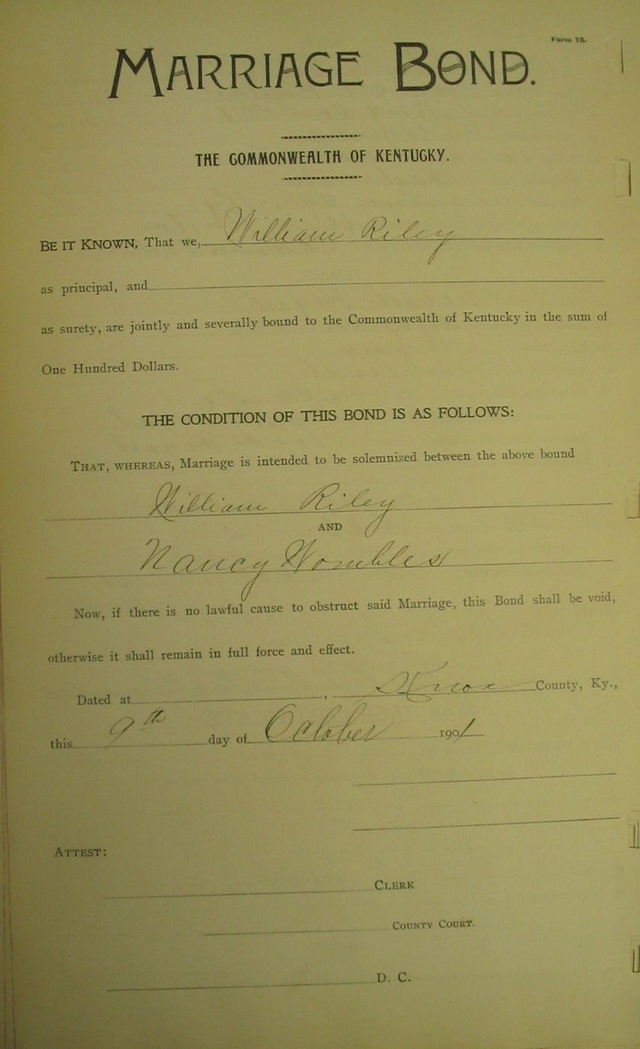 Form 78.
MARRIAGE BOND.
THE COMMONWEALTH OF KENTUCKY.
BE IT KNOWN, That we, William Riley
as principal, and
as surety, are jointly and severally bound to the Commonwealth of Kentucky in the sum of
One Hundred Dollars.
THE CONDITION OF THIS BOND IS AS FOLLOWS:
THAT, WHEREAS, Marriage is intended to be solemnized between the above bound
William Riley
AND
Nancy Wombles
Now, if there is no lawful cause to obstruct said Marriage, this Bond shall be void,
otherwise it shall remain in full force and effect.
Dated at , Knox County, Ky.,
this 9th day of October 1901
ATTEST:
CLERK
COUNTY COURT.
D. C.